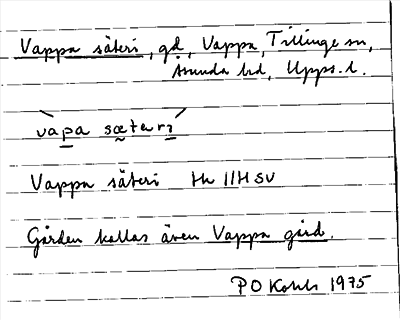 Vappa säteri, gd, Vappa, Tillinge sn,
Åsunda hd, Upps. l.
vapa sætari
Vappa säteri Hk 11H SV
Gården kallas även Vappa gård.
P O Kohls 1975